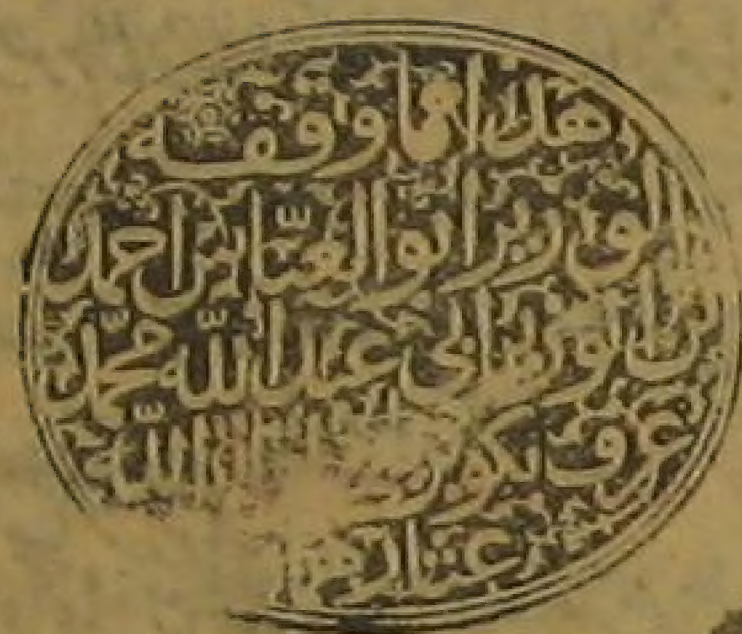 هذا مما وقفه
الوزير ابو العباس احمد
بن الوزير ابي عبد الله محمد
عرف بكوبريلي الله
عنهما